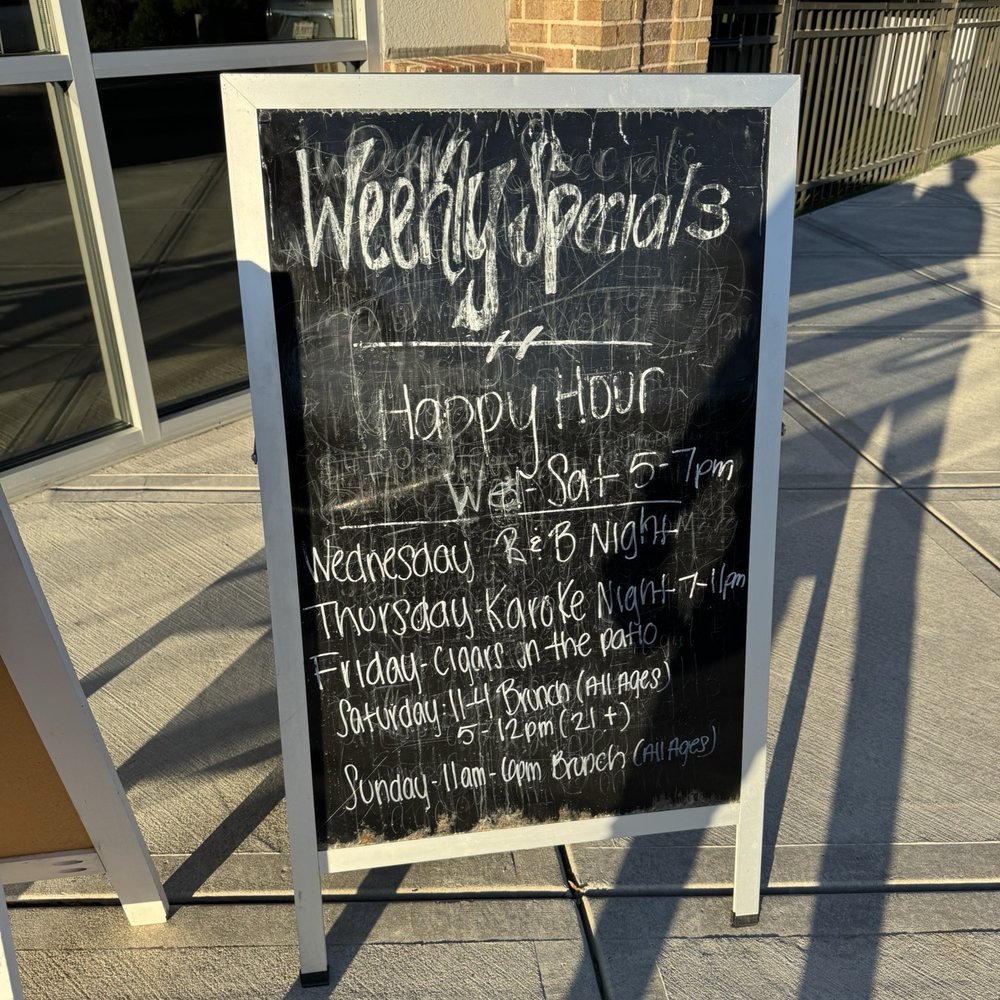 Weekly Specials
Happy Hour
Wed- Sat 5-7pm
Wednesday R&B Night
Thursday-Karoke Night 7-11pm
Friday-Cigars on the patio
Saturday-11-4 Brunch (All Ages)
5-12pm (21+)
Sunday-11am-6pm Brunch (All Ages)